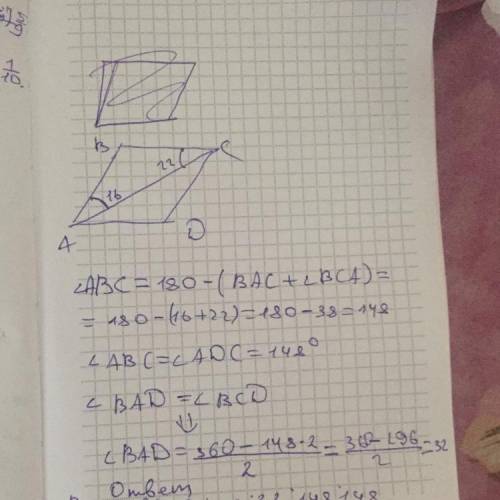 1
10.
B
22
C
16
A
D
∠ABC = 180 - (BAC + ∠BCA) =
= 180 - (16+22) = 180 - 38 = 148
∠ABC = ∠ADC = 148°
∠BAD = ∠BCD
⇓
∠BAD = \frac{360 - 148 · 2}{2} = \frac{360 - 296}{2} = 32
Ответ
148 148